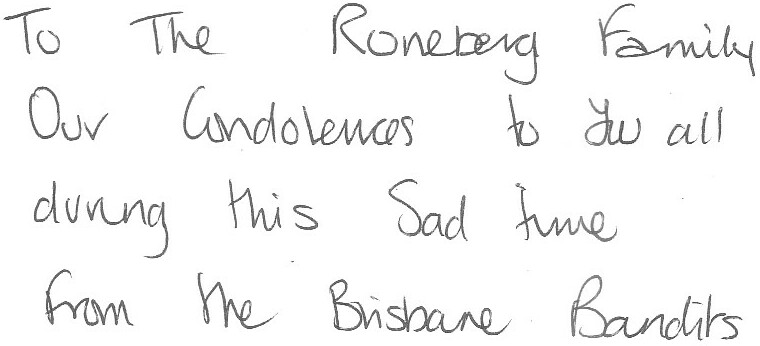 To The Roneberg Family
Our Condolences to you all
during this Sad time
from the Brisbane Bandits